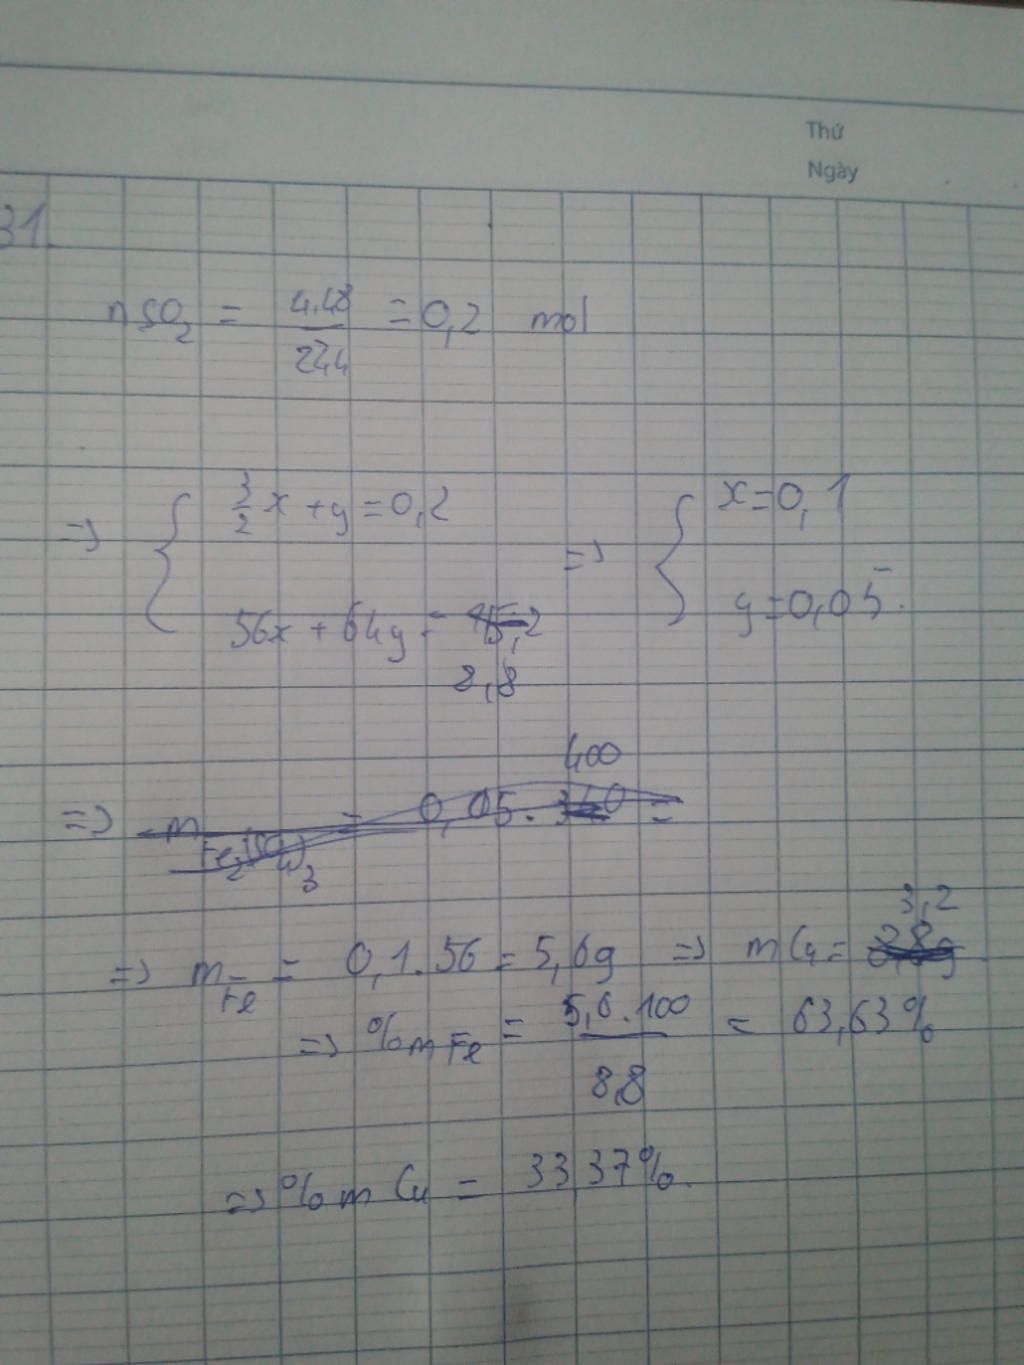 Thứ
Ngày
31.
nSO2 = 4.48 / 22,4 = 0,2 mol
=> { 3/2 x + y = 0,2 => { x = 0,1
56x + 64y = 15,2 y = 0,05.
8,8
400
=> m Fe2(SO4)3 = 0,05. 340 =
3,2
=> mFe = 0,1.56 = 5,6g => mCu =
=> %mFe = 5,6.100 / 8,8 = 63,63%
=> %mCu = 33,37%.